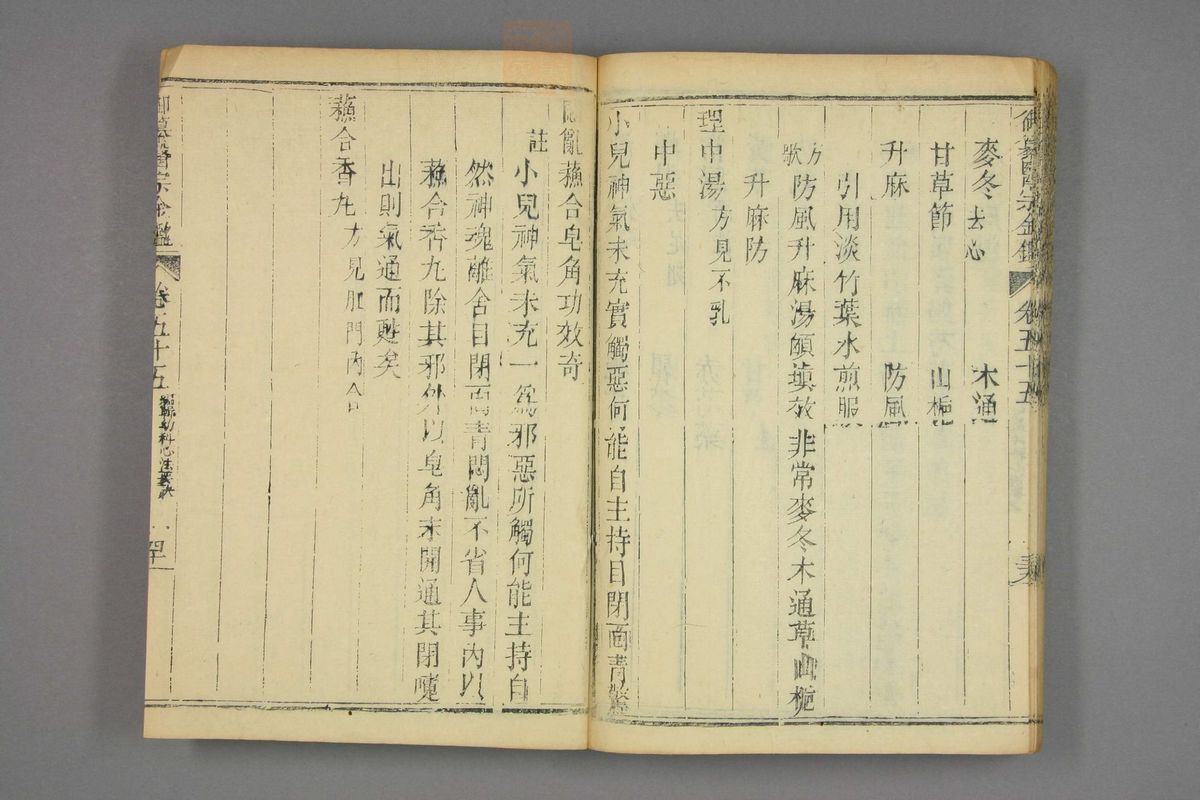 麥冬去心 木通
甘草節 山梔
升麻 防風
引用淡竹葉水煎服
方歌 防風升麻湯頗塡效非常麥冬木通草山梔
升麻防
理中湯方見不乳
中惡
小兒神氣未充實觸惡何能自主持目閉面青
亂蘇合皂角功效奇
註 小兒神氣未充一爲邪惡所觸何能主持自
然神魂離舍目閉面青悶亂不省人事內以
蘇合香丸除其邪外以皂角末開通其閉嚏
出則氣通而甦矣
蘇合香丸方見肛門內合
御纂醫宗金鑑 卷五十五 編輯幼科心法要訣